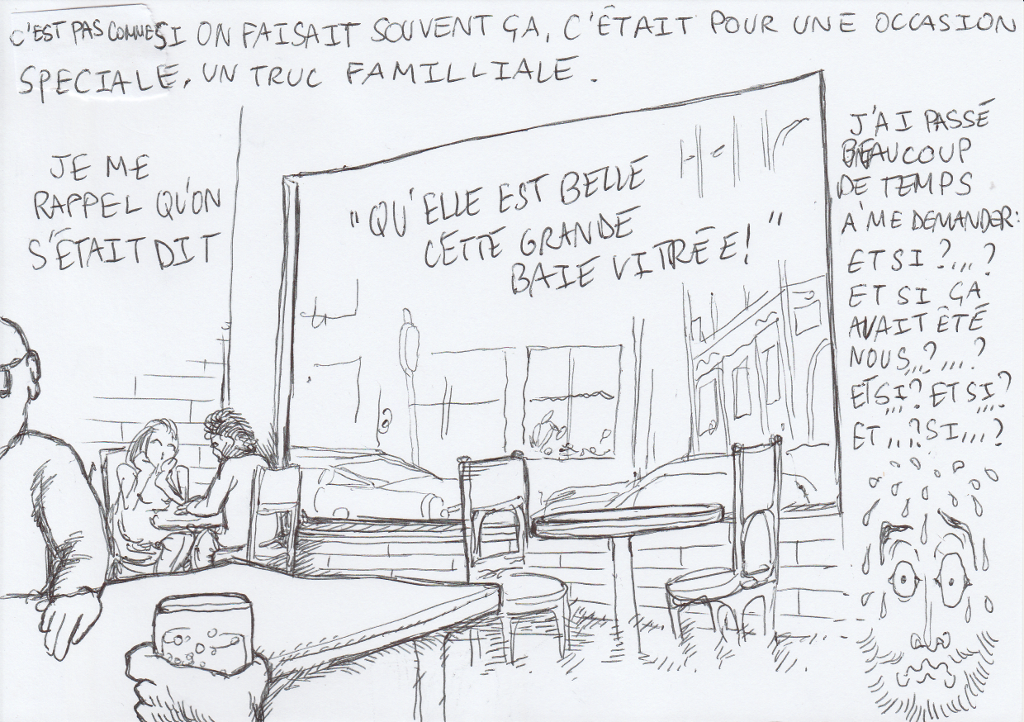 C'EST PAS COMME SI ON FAISAIT SOUVENT ÇA, C'ÊTAIT POUR UNE OCCASION
SPECIALE, UN TRUC FAMILLIALE.
JE ME
RAPPEL QU'ON
S'ÉTAIT DIT
"QU'ELLE EST BELLE
CETTE GRANDE
BAIE VITRÉE!"
J'AI PASSÉ
BEAUCOUP
DE TEMPS
A' ME DEMANDER:
ET SI ?...?
ET SI ÇA
AVAIT ÉTÉ
NOUS...?...?
ET SI? ET SI?
ET...? SI...?